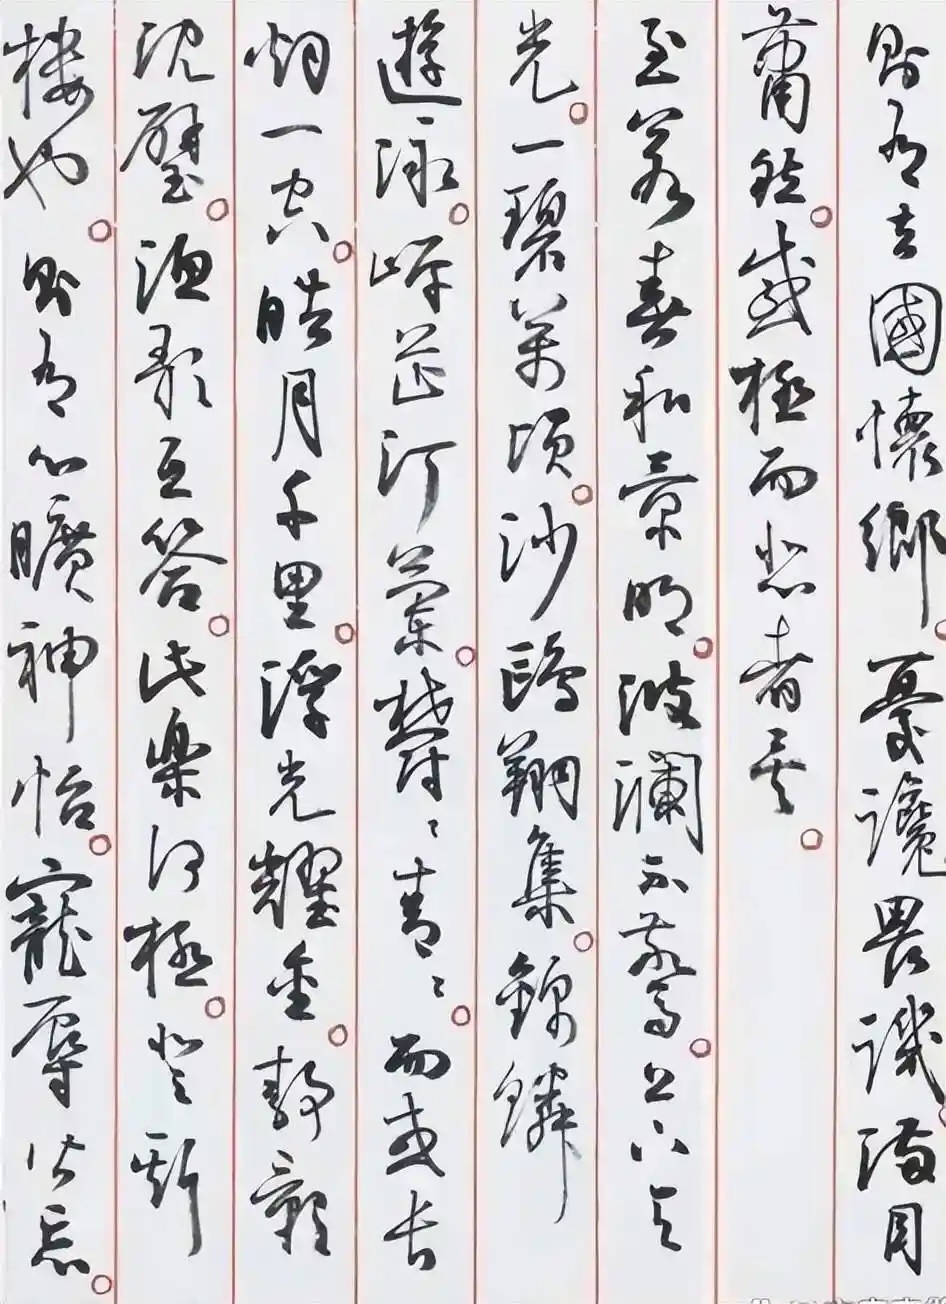 則有去國懷鄉。憂讒畏譏。滿目
蕭然。感極而悲者矣。
至若春和景明。波瀾不驚。上下天
光。一碧萬頃。沙鷗翔集。錦鱗
遊泳。岸芷汀蘭。鬱〻青〻。而或長
烟一空。皓月千里。浮光耀金。靜影
沉璧。漁歌互答。此樂何極。登斯
樓也。則有心曠神怡。寵辱皆忘。